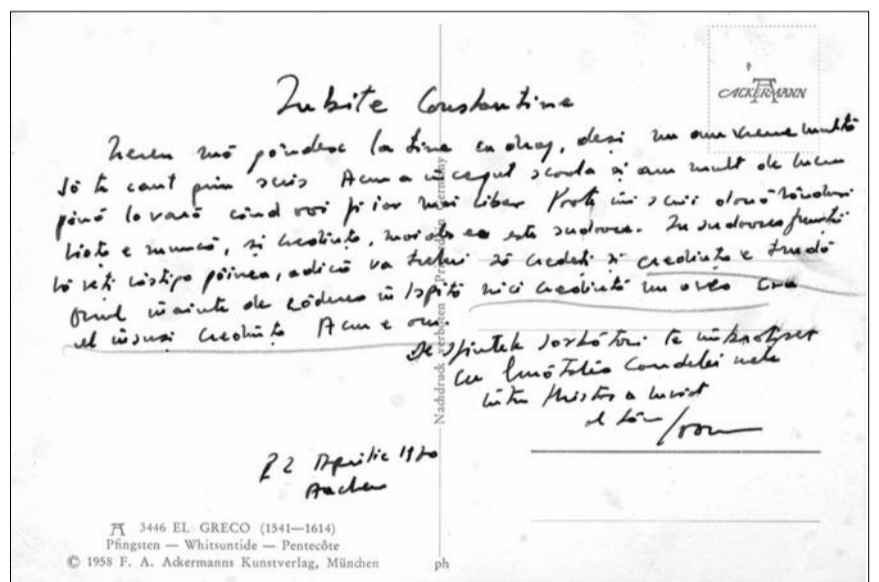 ACKERMANN
Iubite Constantine
mă gîndesc la tine cu drag, deși nu am vreme multă
să te caut prin scris Acum a început școala și am mult de lucru
pînă la vară cînd voi fi iar mai liber Poate îmi scrii două rînduri
Viața e muncă, și credință, mai ales ea este sudoare. In sudoarea frunții
vă veți cîștiga pîinea, adică va trebui să credeți și credința e trudă
Omul înainte de căderea în Ispită nici credință nu avea Era
el însuși credință Acum e om.
De sfintele sărbători te îmbrățișez
cu candelei mele
întru Hristos a înviat
al tău Ioan
22 Aprilie 1970
Aachen
Nachdruck verboten — Printed in Germany
3446 EL GRECO (1541—1614)
Pfingsten — Whitsuntide — Pentecôte
© 1958 F. A. Ackermanns Kunstverlag, München
ph